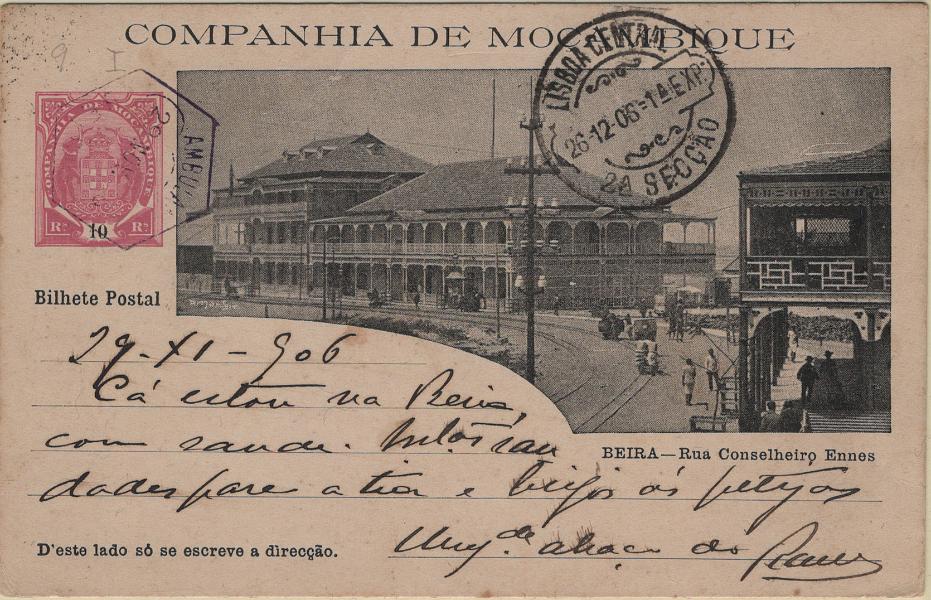 COMPANHIA DE MOÇAMBIQUE
LISBOA CENTRAL
26-12-06-1ª EXP.
2ª SECÇÃO
29 NO
AMBU
COMPANHIA DE MOÇAMBIQUE
Rs 10 Rs
Bilhete Postal
29-XI-906
Cá estou na Beira,
com saude. Muitas sau
dades para a tia e beijos ós
BEIRA—Rua Conselheiro Ennes
D'este lado só se escreve a direcção.
abraço do